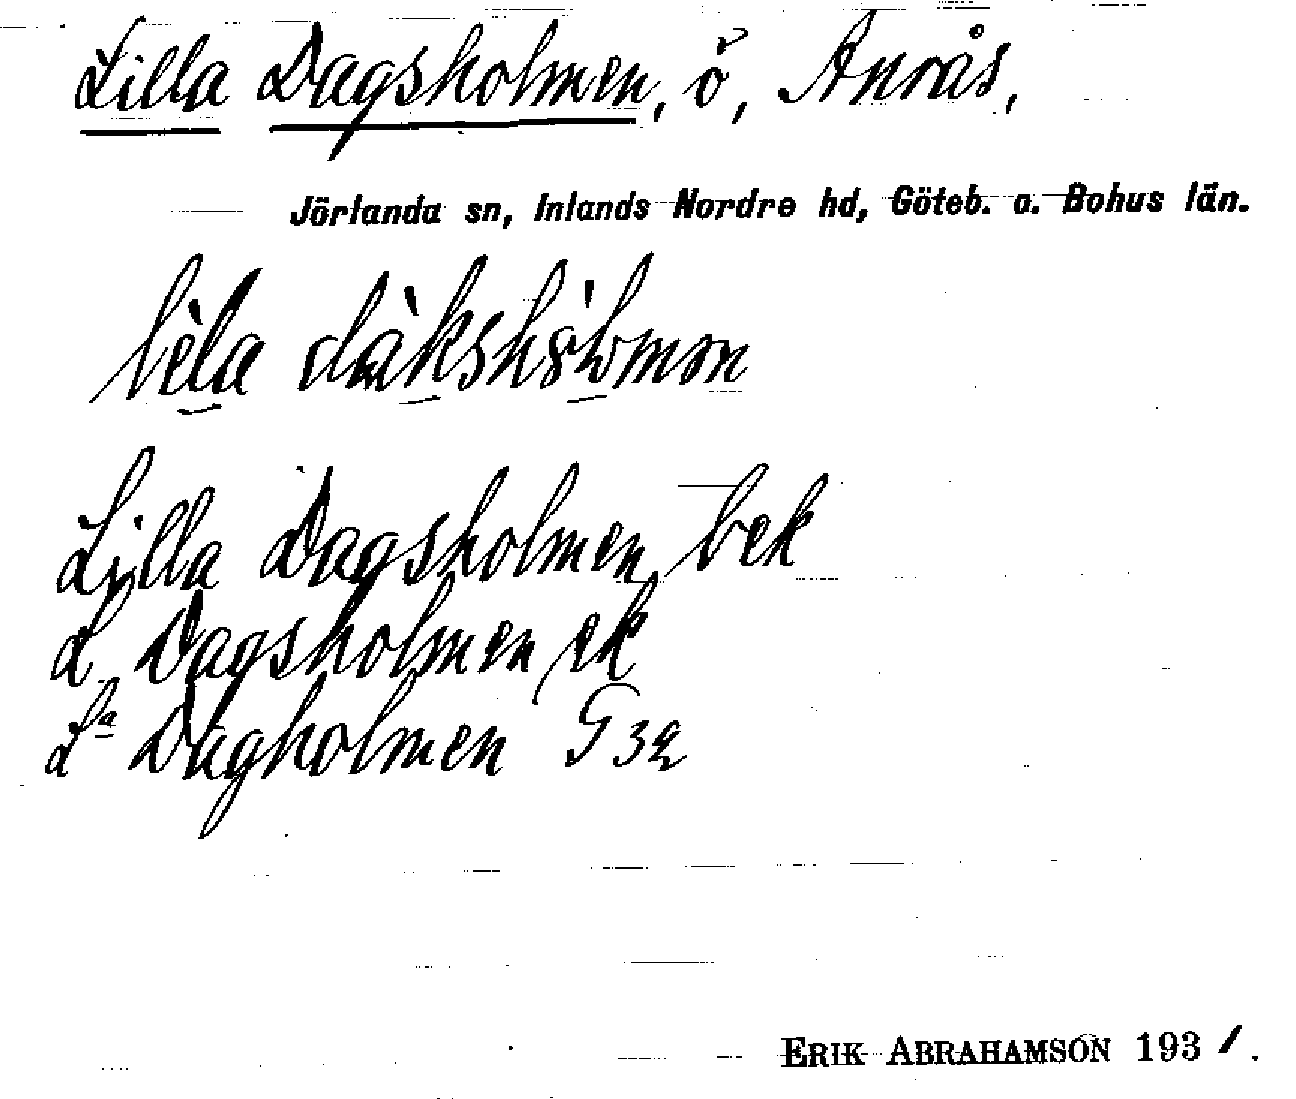 Lilla Dagsholmen, ö, Anrås,
Jörlanda sn, Inlands Nordre hd, Göteb. o. Bohus län.
Lilla Dagsholmen bek
L Dagsholmen ek
Lª Dagholmen G 32
ERIK ABRAHAMSON 1931.